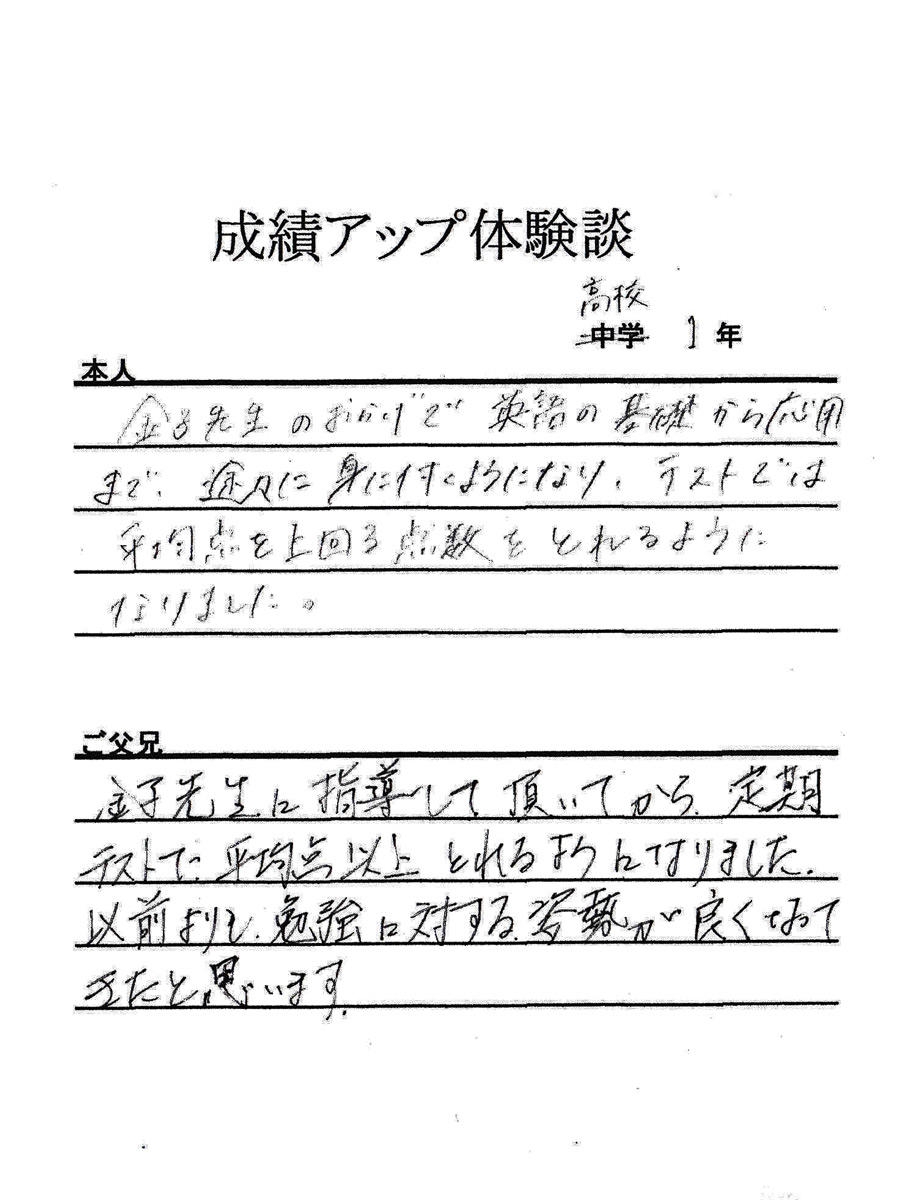 成績アップ体験談
高校
中学 1 年
本人
金子先生のおかげで 英語の基礎から応用
まで、途々に身に付くようになり、テストでは
平均点を上回る点数をとれるように
なりました。
ご父兄
金子先生に指導して頂いてから、定期
テストで平均点以上とれるようになりました。
以前よりも、勉強に対する姿勢が良くなって
きたと思います。